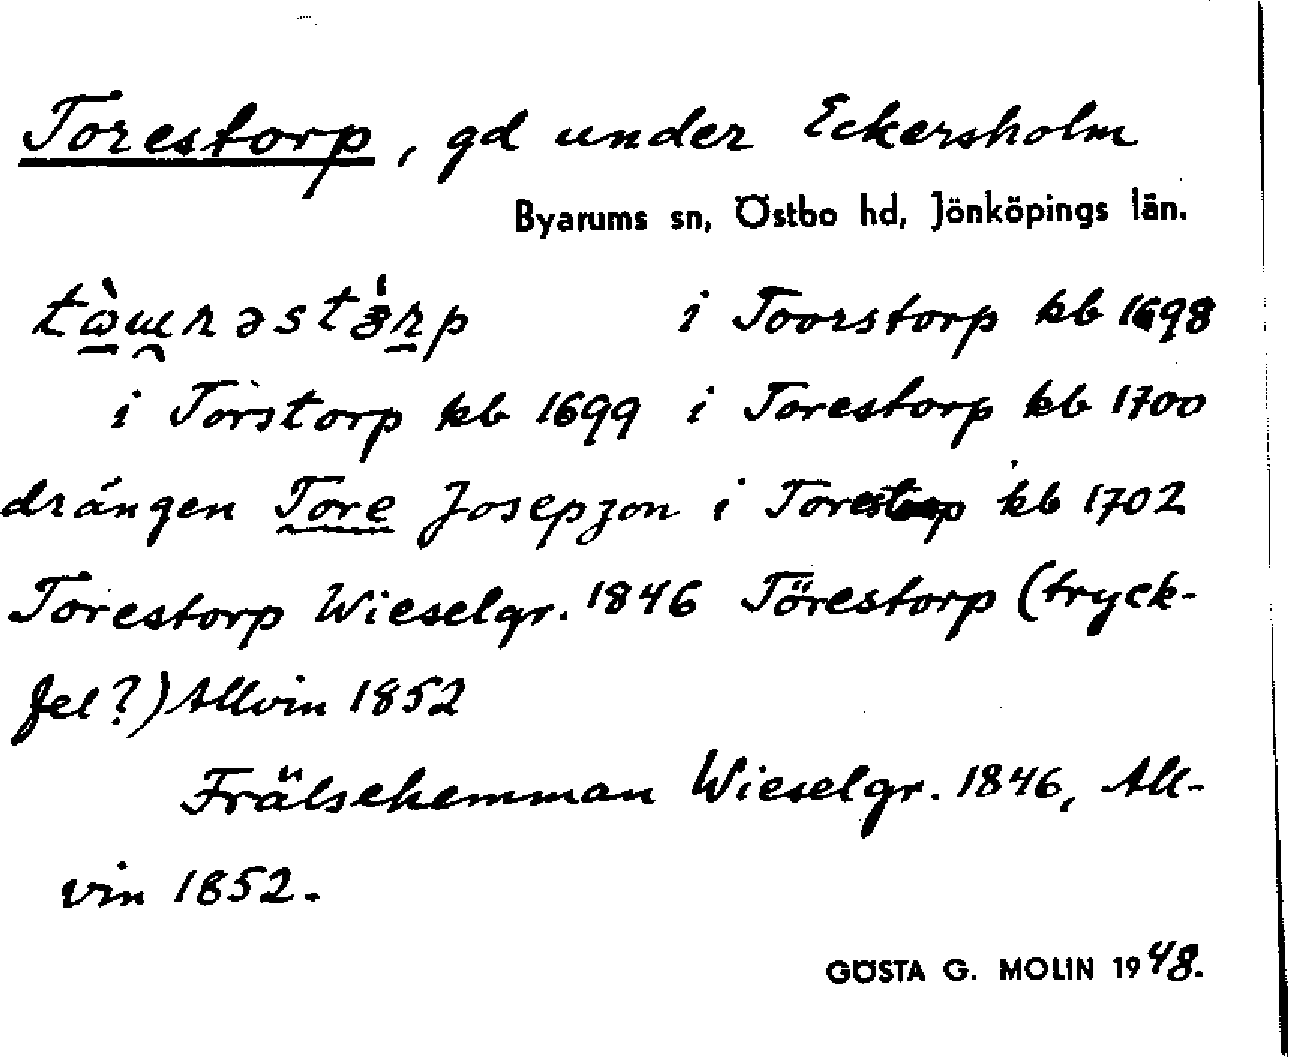 Torestorp, gd under Eckersholm
Byarums sn, Östbo hd, Jönköpings län.
i Toorstorp kb 1698
i Torstorp kb 1699 i Torestorp kb 1700
drängen Tore Josepzon i Torestorp kb 1702
Torestorp Wieselgr. 1846 Törestorp (tryck-
fel?) Allvin 1852
Frälsehemman Wieselgr. 1846, All-
vin 1852.
GÖSTA G. MOLIN 1948.